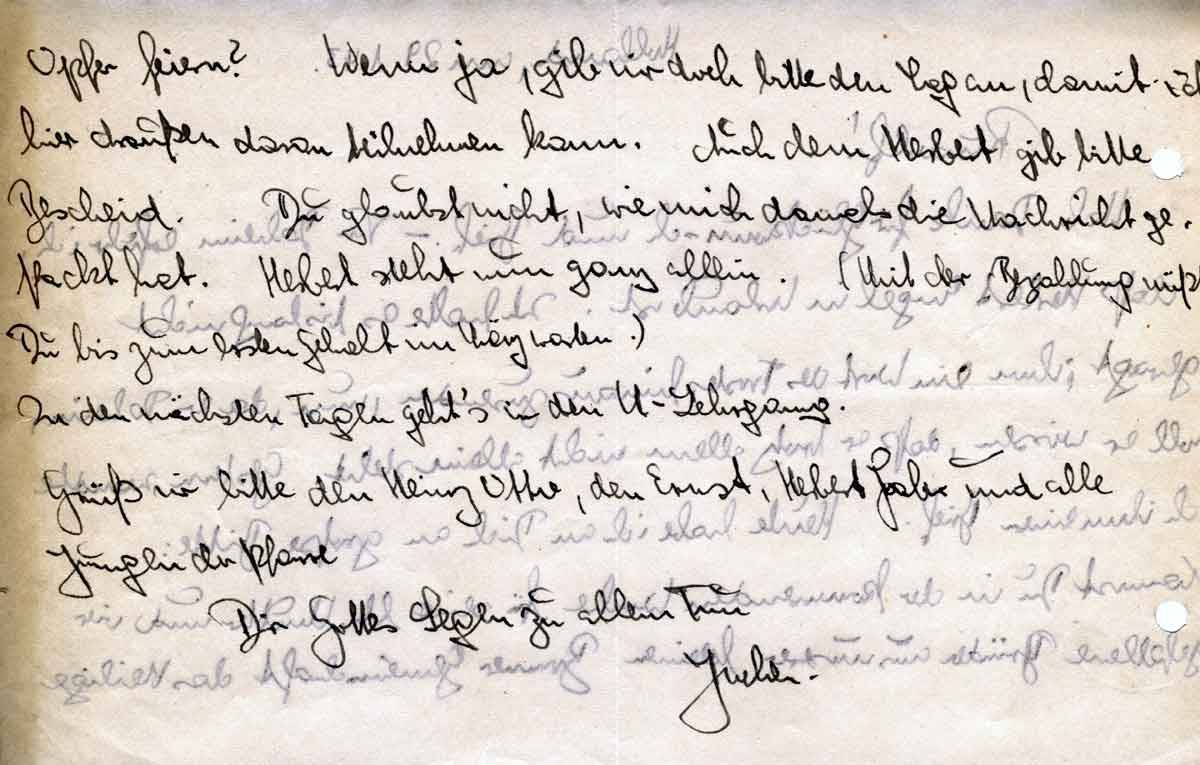 Opfer feiern? Wenn ja, gib mir doch bitte den Tag an, damit ich
hier draußen daran teilnehmen kann. Auch dem Herbert gib bitte
Bescheid. Du glaubst nicht, wie mich damals die Nachricht ge-
packt hat. Herbert steht nun ganz allein. (Mit der Bezahlung mußt
Du bis zum ersten Gehalt im März warten.)
In den nächsten Tagen geht's in den U-Lehrgang.
Grüß mir bitte den Heinz Otto, den Ernst, Herbert und alle
Jungen der Pfarre
Dir Gottes Segen zu allem Tun